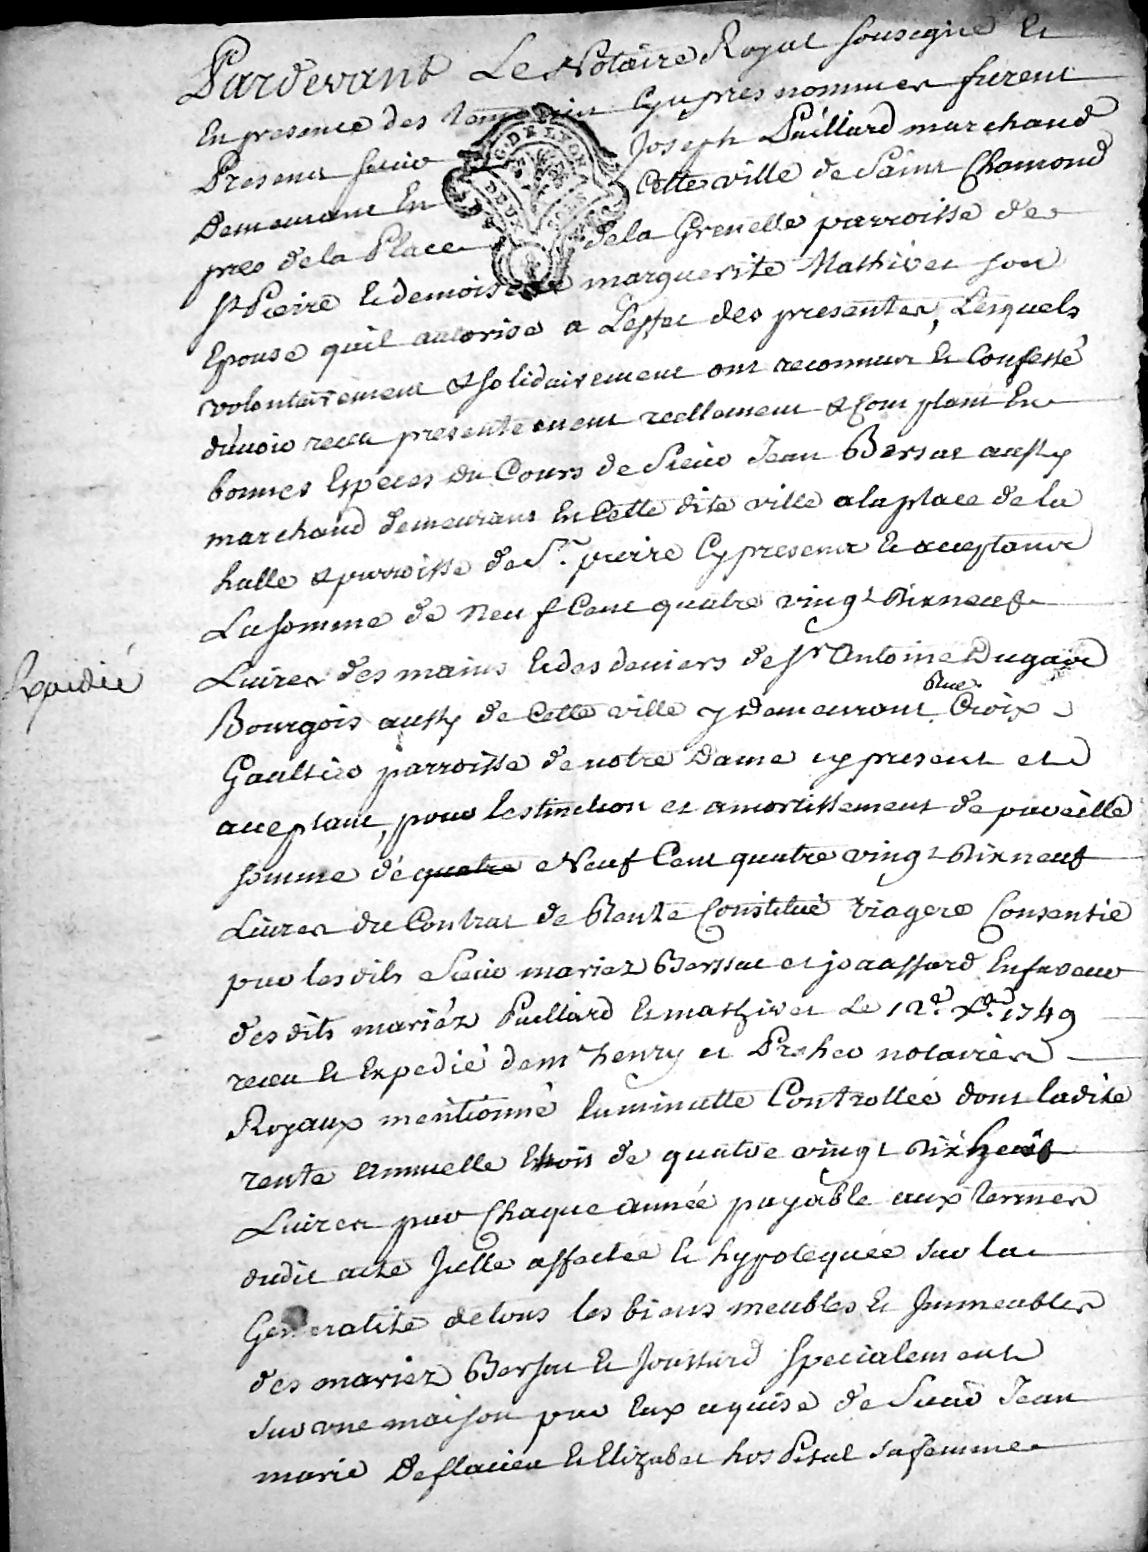 Pardevant Le Notaire Royal soussigné Et
En presence des temoins Cy apres nommes furent
Presens sieur Joseph Paillard marchand
Demeurant En Cette ville de Saint Chamond
pres de la Place de la Grenette parroisse de
St Pierre Et demoiselle marguerite Mathivet son
Epouse quil autorise a Leffet des presentes, Lesquels
volontairement & solidairement ont reconnus Et Confessé
davoir receu presentement reellement & Comptant En
bonnes Especes du Cours de Sieur Jean Bersat aussy
marchand demeurant En Cette dite ville a la place de la
halle & parroisse de St. pierre Cy present Et acceptant
La somme de Neuf Cent quatre vingt Dix neuf
Expedié
Livres des mains Et des deniers de Sr Antoine Dugaive
Bourgois aussy de Cette ville y Demeurant Rue Croix
Gaultier parroisse de notre Dame cy present et
acceptant, pour lestinction et amortissement de pareille
somme de quatre Neuf Cent quatre vingt Dix neuf
Livres du Contrat de Rente Constitué viagere Consentie
par lesdits Sieur mariez Berssat et joassard En faveur
desdits mariéz Paillard Et mathivet Le 12e. Xbre. 1749
receu Et Expedié de me henry et notaires
Royaux mentionné En minutte Controllée dont ladite
rente annuelle Etoit de quatre vingt Dix
Livres par Chaque année payable aux termes
dudit acte Icelle affectée Et hypotequée sur la
Generalité de tous les biens meubles Et Immeubles
des mariez Bersat Et Joussard specialement
sur une maison par Eux aquise de Sieur Jean
marie Deflacieu Et Elizabet hospital sa femme